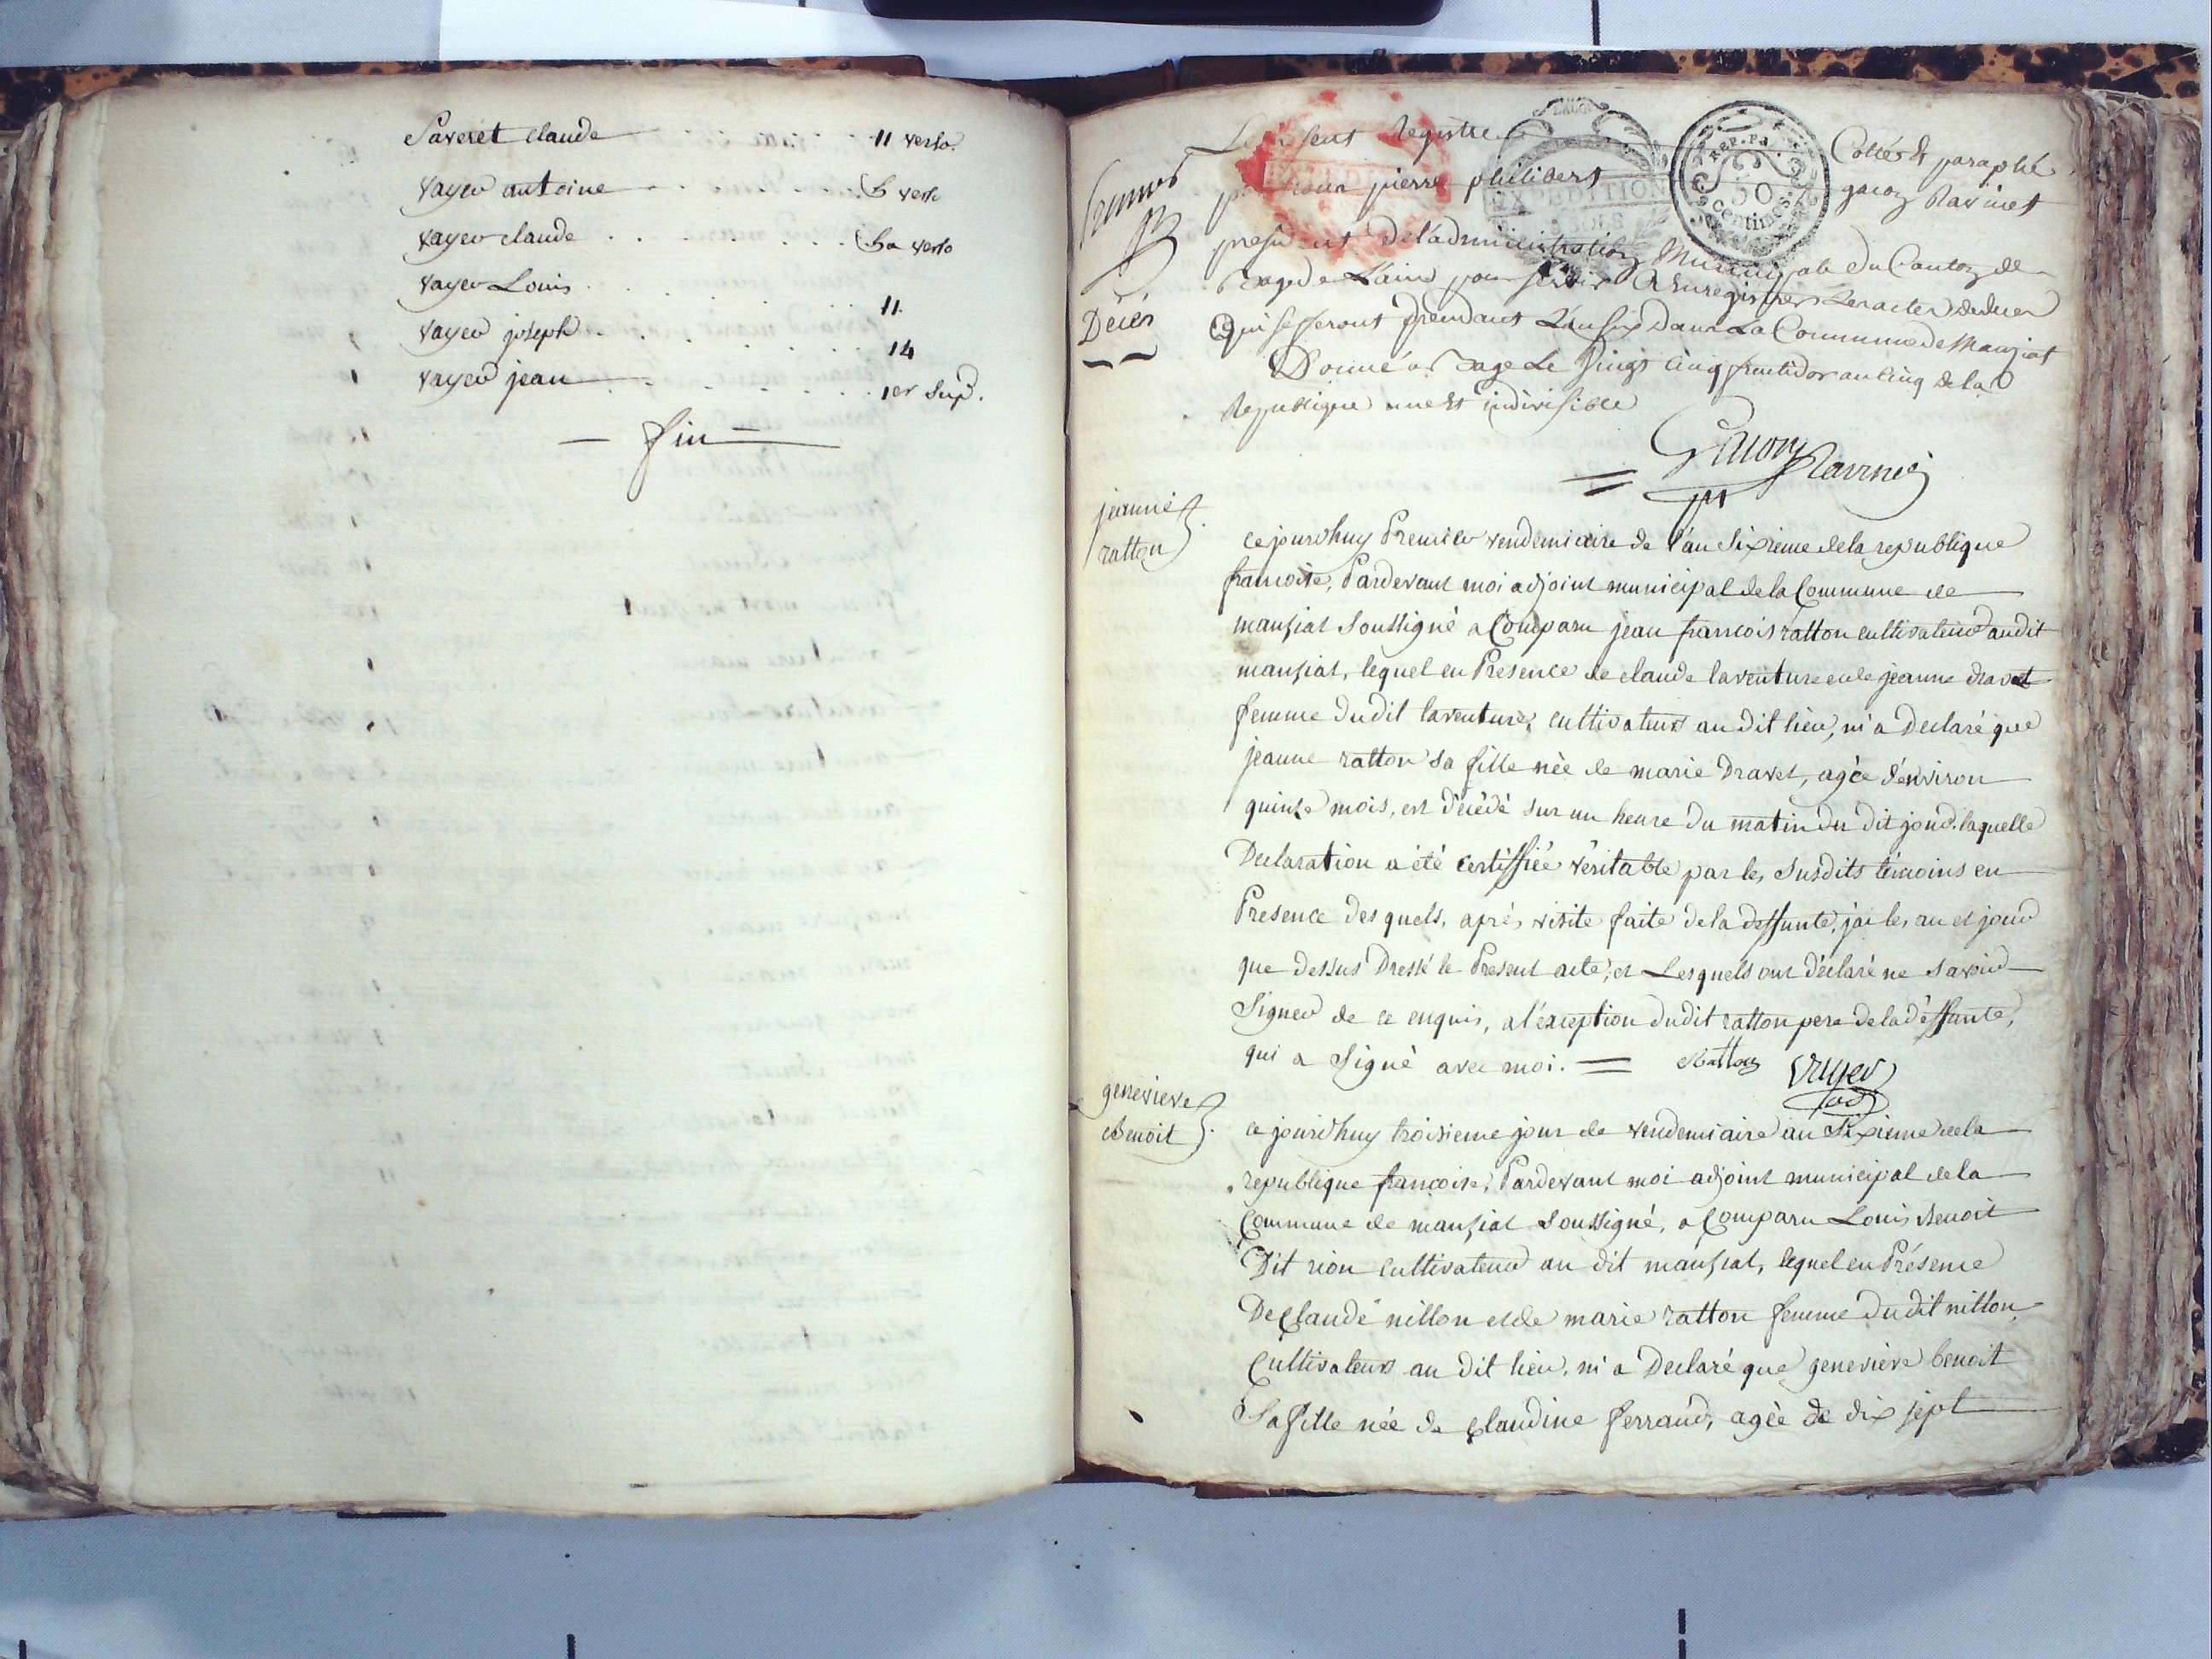 Saveret claude 11 verso.
vayer antoine . . . . . 6 verso
vayer claude . . . . . . 6 verso
vayer Louis . . . . . . 11.
vayer joseph . . . . . . 14
vayer jean . . . . . . 1er sup.
— fin —
Le present Registre Cottés et paraphé
par nous pierre philibert gacon Ravinet
president de l'administration Municipale du Canton de
Bagé de L'ain pour servir a Enregistrer Les actes de deces
qui se feront pendant L'an six dans La Commune de Manziat
Donné a Bagé Le vingt cinq fructidor an cinq de la
Republique une et indivisible
Décès
REP. FR.
50
centimes
EXPEDITION
Gacon Ravinet
jeanne
ratton
ce jourdhuy Premier vendemiaire de l'an Sixieme de la republique
francoise, Pardevant moi adjoint municipal de la Commune de
manziat Soussigné a Comparu jean francois ratton cultivateur audit
manziat, lequel en Presence de claude laventure et de jeanne dravet
femme dudit laventure, cultivateurs au dit lieu, m'a Declaré que
jeanne ratton sa fille née de marie Dravet, agée d'environ
quinze mois, est décédé sur un heure du matin du dit jour. laquelle
Declaration a été certiffiée véritable par les susdits témoins en
Presence des quels, après visite faite de la deffunte, j'ai les an et jour
que dessus Dressé le Present acte, et Lesquels ont déclaré ne savoir
Signer de ce enquis, a l'exception dudit ratton pere de la déffunte,
qui a Signé avec moi. = Ratton vayer
adj
genevieve
Benoit
ce jourdhuy troisieme jour de vendemiaire an Sixieme de la
republique francoise, Pardevant moi adjoint municipal de la
Commune de manziat Soussigné, a Comparu Louis Benoit
Dit rion cultivateur au dit manziat, lequel en Présence
De Claude nillon et de marie ratton femme dudit nillon,
Cultivateurs au dit lieu, m'a Declaré que genevieve benoit
Sa fille née de Claudine ferrand, agée de dix sept